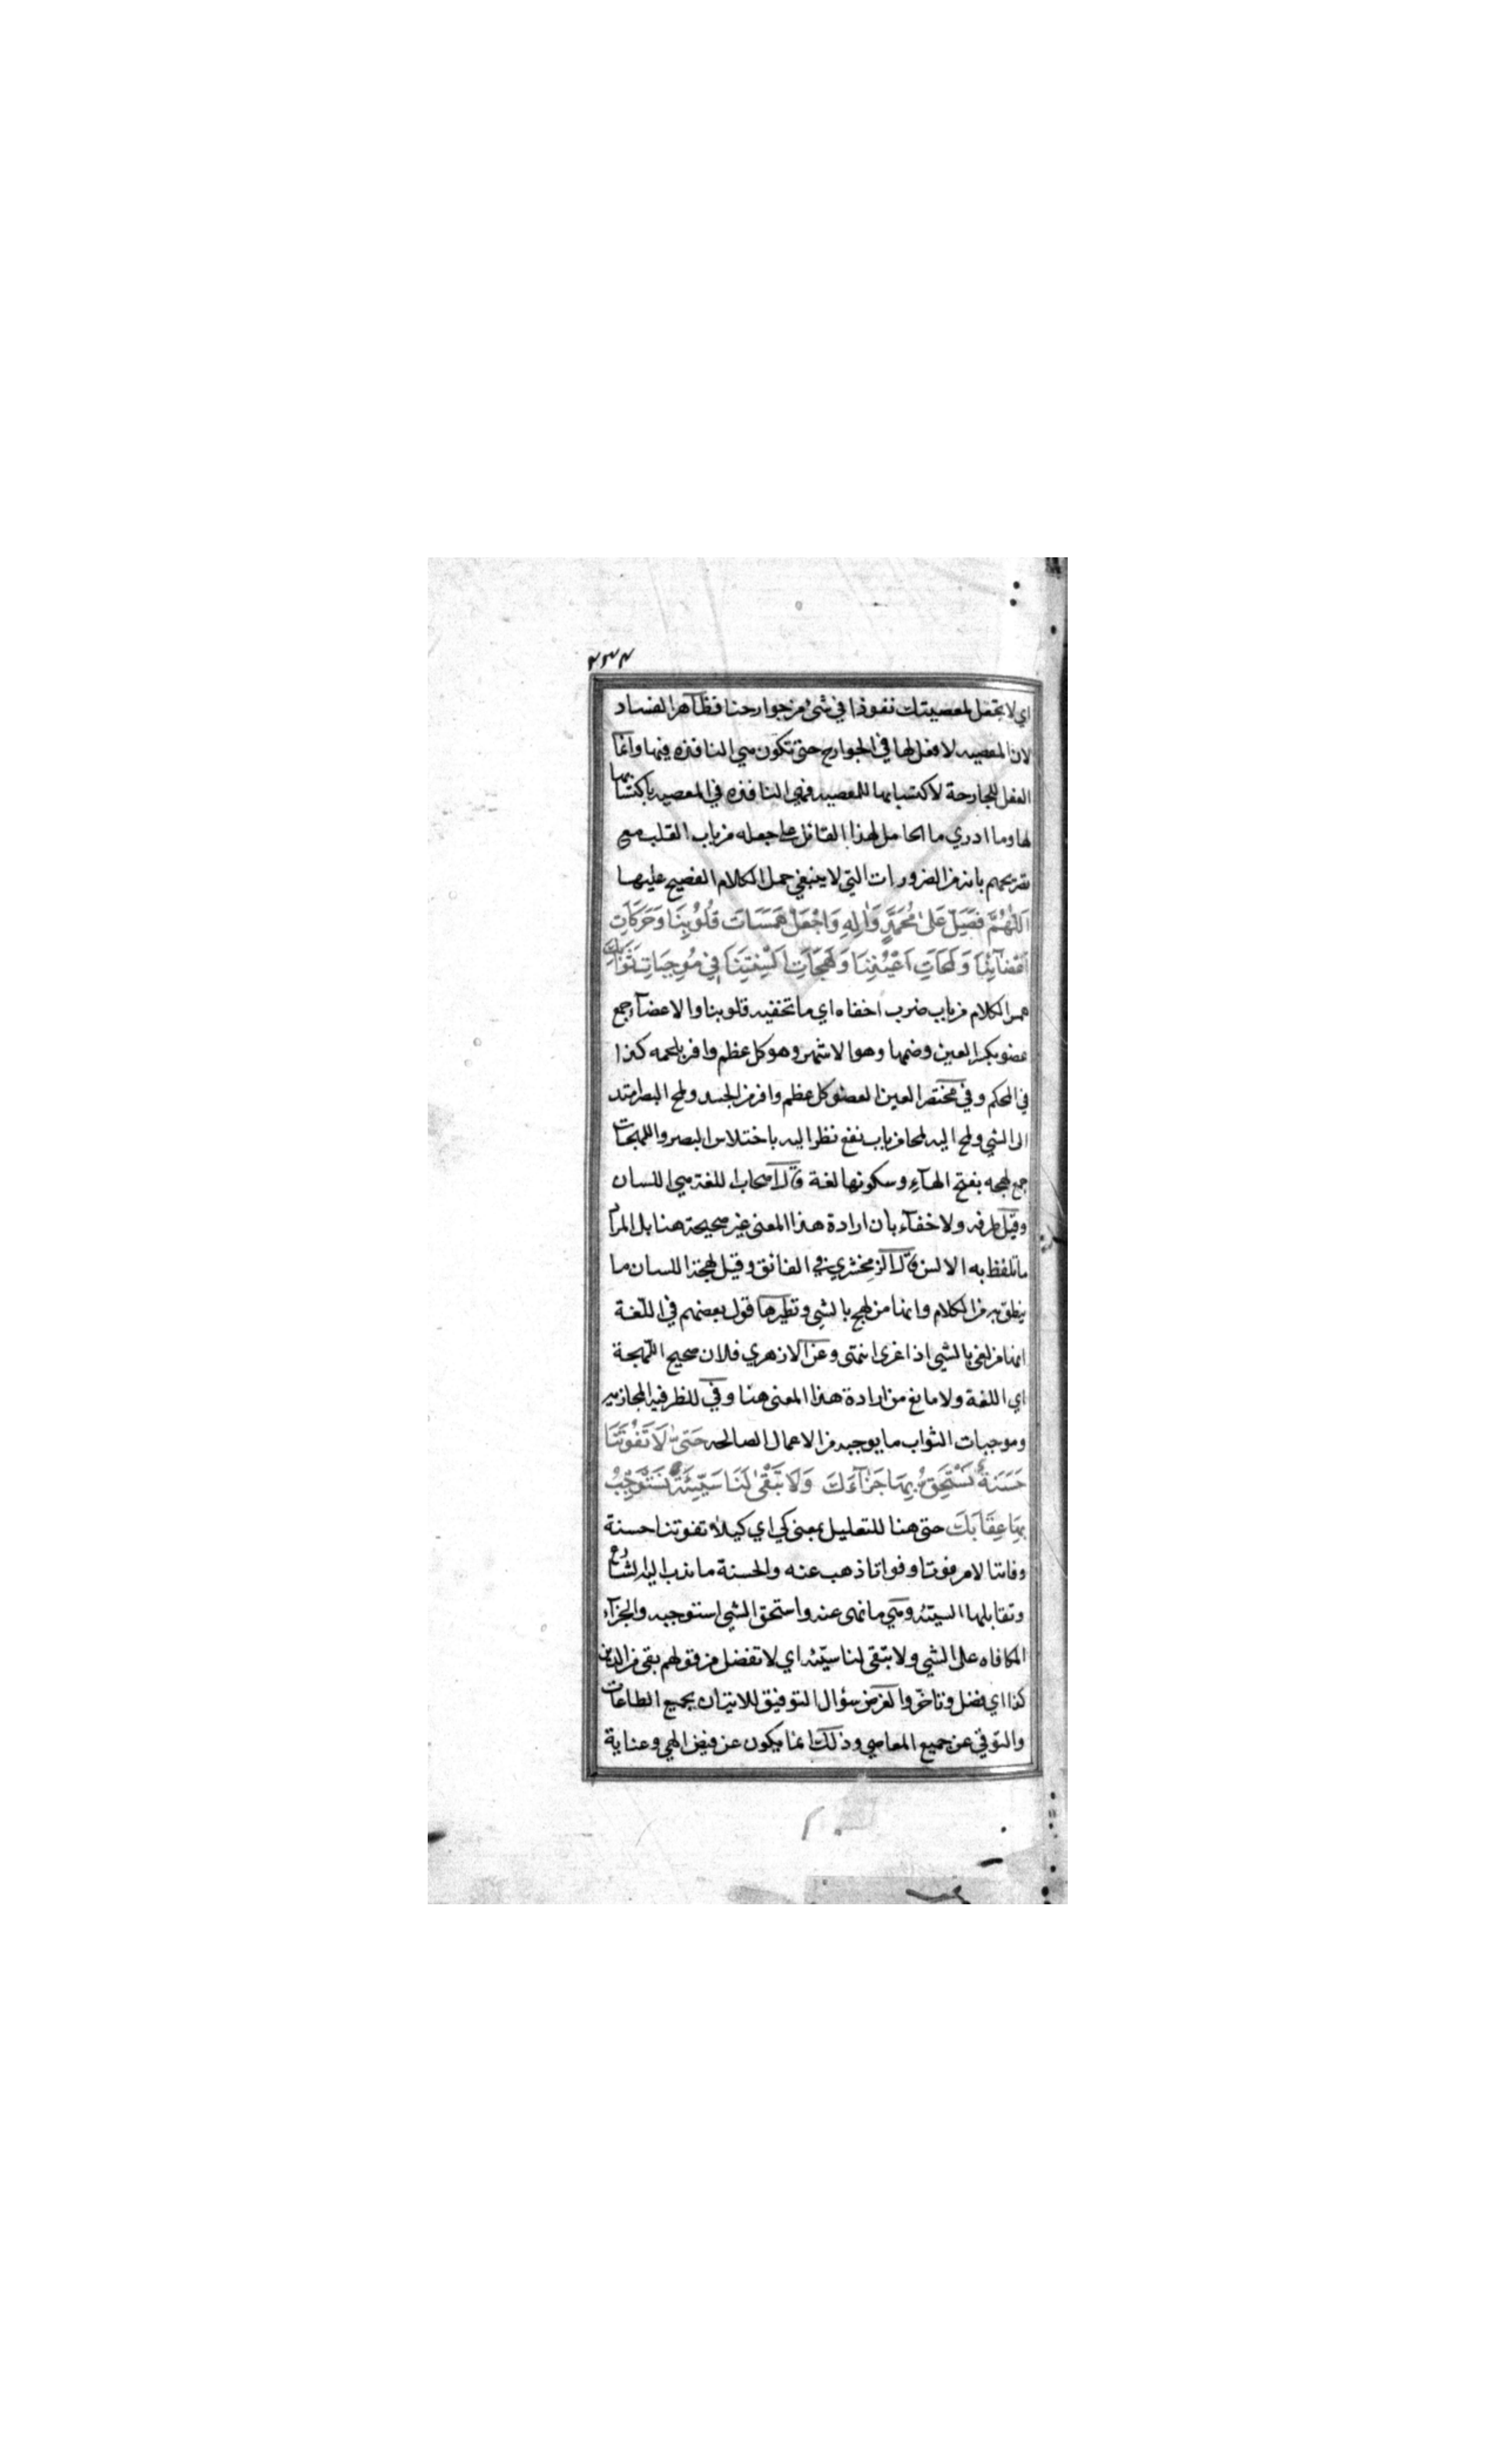 ٢٣٤
اي لا تجعل لمعصيتك نفوذا في شئ من جوارحنا فظآهر الفساد
لان المعصيه لا فعل لها في الجوارح حتى تكون هي النافذه فيها وانما
الفعل للجارحة لاكتسابها للمعصيه فهي النافذه في المعصيه باكتسابها
لها وما ادري ما الحامل لهذا القائل على جعله من باب القلب مع
تصريحهم بانه من الضرورات التي لا ينبغي حمل الكلام الفصيح عليها
اَللّٰهُمَّ فَصَلِّ عَلىٰ مُحَمَّدٍ وَاٰلِهِ وَاجْعَلْ هَمَسَاتِ قُلُوْبِنَا وَحَرَكَاتِ
اَعْضَآئِنَا وَلَمَحَاتِ اَعْيُنِنَا وَلَهَجَاتِ اَلْسِنَتِنَا فِي مُوجِبَاتِ ثَوَابِكَ
همس الكلام من باب ضرب اخفاه اي ما تخفيه قلوبنا والاعضآء جمع
عضو بكسر العين وضمها وهو الاشهر وهو كل عظم وافر بلحمه كذا
في المحكم وفي مختصر العين العضو كل عظم وافر من الجسد ولمح البصر امتد
الى الشي ولمح اليه لمحا من باب نفع نظر اليه باختلاس البصر واللهجات
جمع لهجه بفتح الهآء وسكونها لغة قال اصحاب اللغة هي اللسان
وقيل طرفه ولا خفآء بان ارادة هذا المعنى غير صحيحة هنا بل المراد
ما تلفظ به الالسن قال الزمخشري في الفائق وقيل لهجة اللسان ما
ينطق به من الكلام وانها من لهج بالشي ونظيرها قول بعضهم في اللّغة
انها من لغي بالشي اذا غرى انتهى وعن الازهري فلان صحيح اللّهجة
اي اللغة ولا مانع من ارادة هذا المعنى هنا وفي للظرفيه المجازيه
وموجبات الثواب ما يوجبه من الاعمال الصالحه حَتىّٰ لَا تَفُوْتَنَا
حَسَنَةٌ نَسْتَحِقُّ بِهَا جَزَآءَكَ وَلَا تَبْقىٰ لَنَا سَيِّئَةٌ نَسْتَوْجِبُ
بِهَا عِقَابَكَ حتى هنا للتعليل بمعنى كي اي كيلا تفوتنا حسنة
وفاتنا الامر فوتا وفواتا ذهب عنه والحسنة ما ندب اليه الشارع
وتقابلها السيئه وهي ما نهى عنه واستحق الشي استوجبه والجزآء
المكافاه على الشي ولا تبقى لنا سيّئه اي لا تفضل من قولهم بقي من الدين
كذا اي فضل وتاخّر والغرض سؤال التوفيق للاتيان بجميع الطاعات
والتوقي عن جميع المعاصي وذلك انما يكون عن فيض الهي وعناية